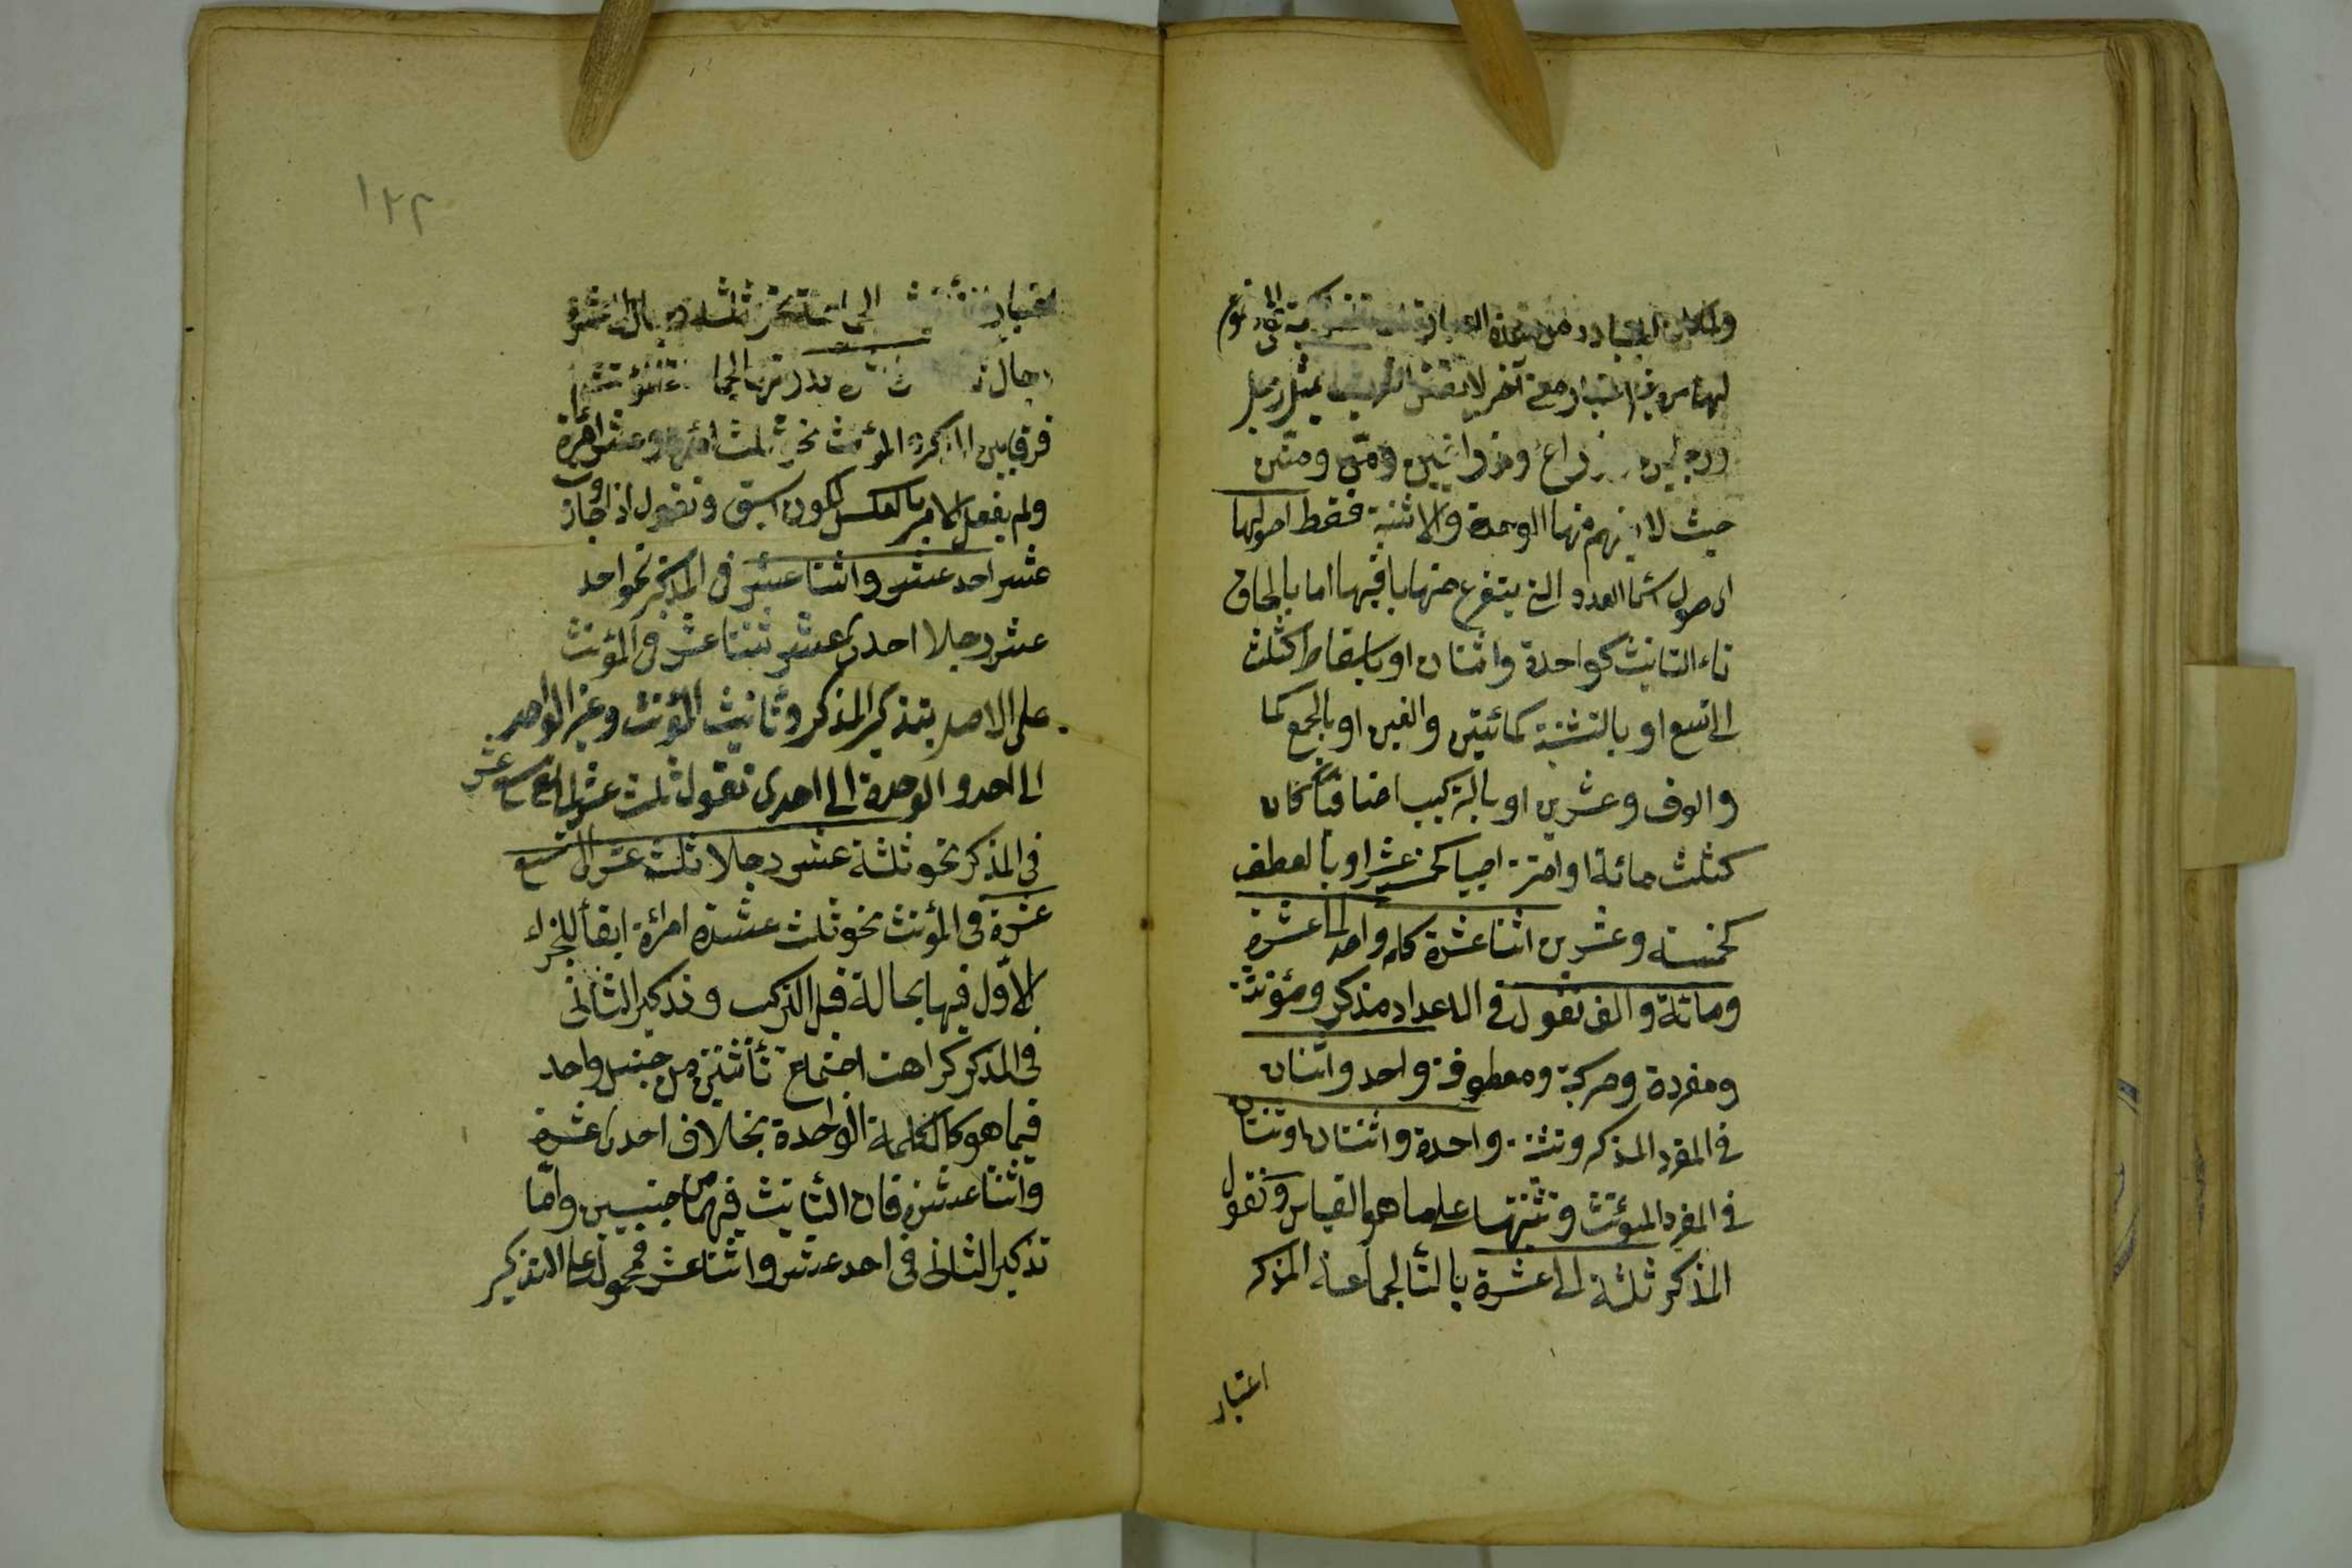 ولما كان المتبادر من هذه
ليس اعتبار معنى آخر لا ينتقض التعريف بمثل رجل
ورجلين وذراع وذراعين ومن ومنين
حيث لا يفهم منها الوحدة والاثنية فقط اصولها
اى اصول اسماء العدد التى يتفرع منها باقيها اما بالحاق
تاء التانيث كواحدة واثنتان او باسقاطها كثلث
الى تسع او بالتثنية كمائتين والفين او بالجمع كما
والوف وعشرين او بالتركيب اضافيا كان
كثلث مائة او امتزاجيا كخمسة عشر او بالعطف
كخمسة وعشرين اثنا عشرة كلمة واحد الى عشرة
ومائة والف تقول فى الاعداد مذكر ومؤنثة
ومفردة ومركبة ومعطوفة واحد واثنان
فى المفرد المذكر وتثنية واحدة واثنتان او ثنتان
فى المفرد المؤنث وتثنيتها على ما هو القياس وتقول
المذكر ثلثة الى عشرة بالتا لجماعة المذكر
اعتبار
١٢٢
اعتبار الى نحو ثلثة رجال الى عشرة
رجال
فرقا بين المذكر والمؤنث نحو ثلث امرأة وعشر امرأة
ولم يفعل الامر بالعكس لكون اسبق وتقول اذا جاوز
عشر احد عشر واثنا عشر فى المذكر نحو احد
عشر رجلا احدى عشر ثنتا عشر فى المؤنث
على الاصل بتذكير المذكر وتانيث المؤنث وغير الواحد
الى احد والوحدة الى احدى تقول ثلث عشر الى تسع عشر
فى المذكر نحو ثلثة عشر رجلا ثلث عشر الى تسع
عشرة فى المؤنث نحو ثلث عشرة امرأة ابقأ للجزاء
الاول فيها بحالة قبل التركيب وتذكير الثانى
فى المذكر كراهة اجتماع تأنثين من جنس واحد
فيما هو كالكلمة الواحدة بخلاف احدى عشرة
واثنا عشرة فان التانيث فيهما من جنسين واما
تذكير الثانى فى احد عشر واثنا عشر فمحمول على التذكير